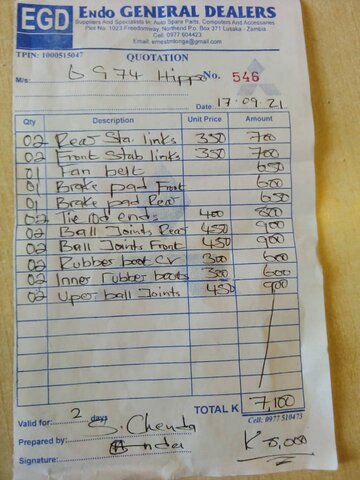 EGD Endo GENERAL DEALERS
Suppliers And Specialists In: Auto Spare Parts, Computers And Accessories
Plot No. 1023 Freedomway, Northend P.O. Box 371 Lusaka - Zambia.
Cell: 0977 604423
Email: ernestmtonga@gmail.com
TPIN: 1000515047
QUOTATION
M/s: G974 Hippo No. 546
Date: 17.09.21
Qty Description Unit Price Amount
02 Rear Sta. links 350 700
02 Front Stab links 350 700
01 Fan belt 650
01 Brake pad Front 600
01 Brake pad Rear 650
02 Tie rod ends 400 800
02 Ball Joints Rear 450 900
02 Ball Joints Front 450 900
02 Rubber boot CV 300 600
02 Inner rubber boots 300 600
02 Uper ball Joints 450 900
TOTAL K 7,100
Cell: 0977 510473
Valid for: 2 days
Prepared by: S. Chenda
Signature: